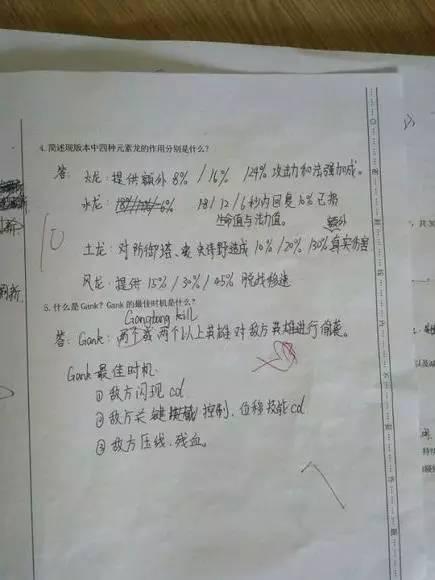 4. 简述现版本中四种元素龙的作用分别是什么?
答: 火龙: 提供额外 8% / 16% / 24% 攻击力和法强加成。
水龙: 18 / 12 / 6 秒内回复 10% 已损
生命值与法力值。
额外
土龙: 对防御塔、史诗野造成 10% / 20% / 30% 真实伤害
10
风龙: 提供 15% / 30% / 45% 脱战移速
5. 什么是Gank? Gank 的最佳时机是什么?
Gangbang kill
答: Gank: 两个或两个以上英雄对敌方英雄进行偷袭。
Gank 最佳时机
① 敌方闪现 cd
② 敌方关键 控制、位移技能 cd
③ 敌方压线、残血。